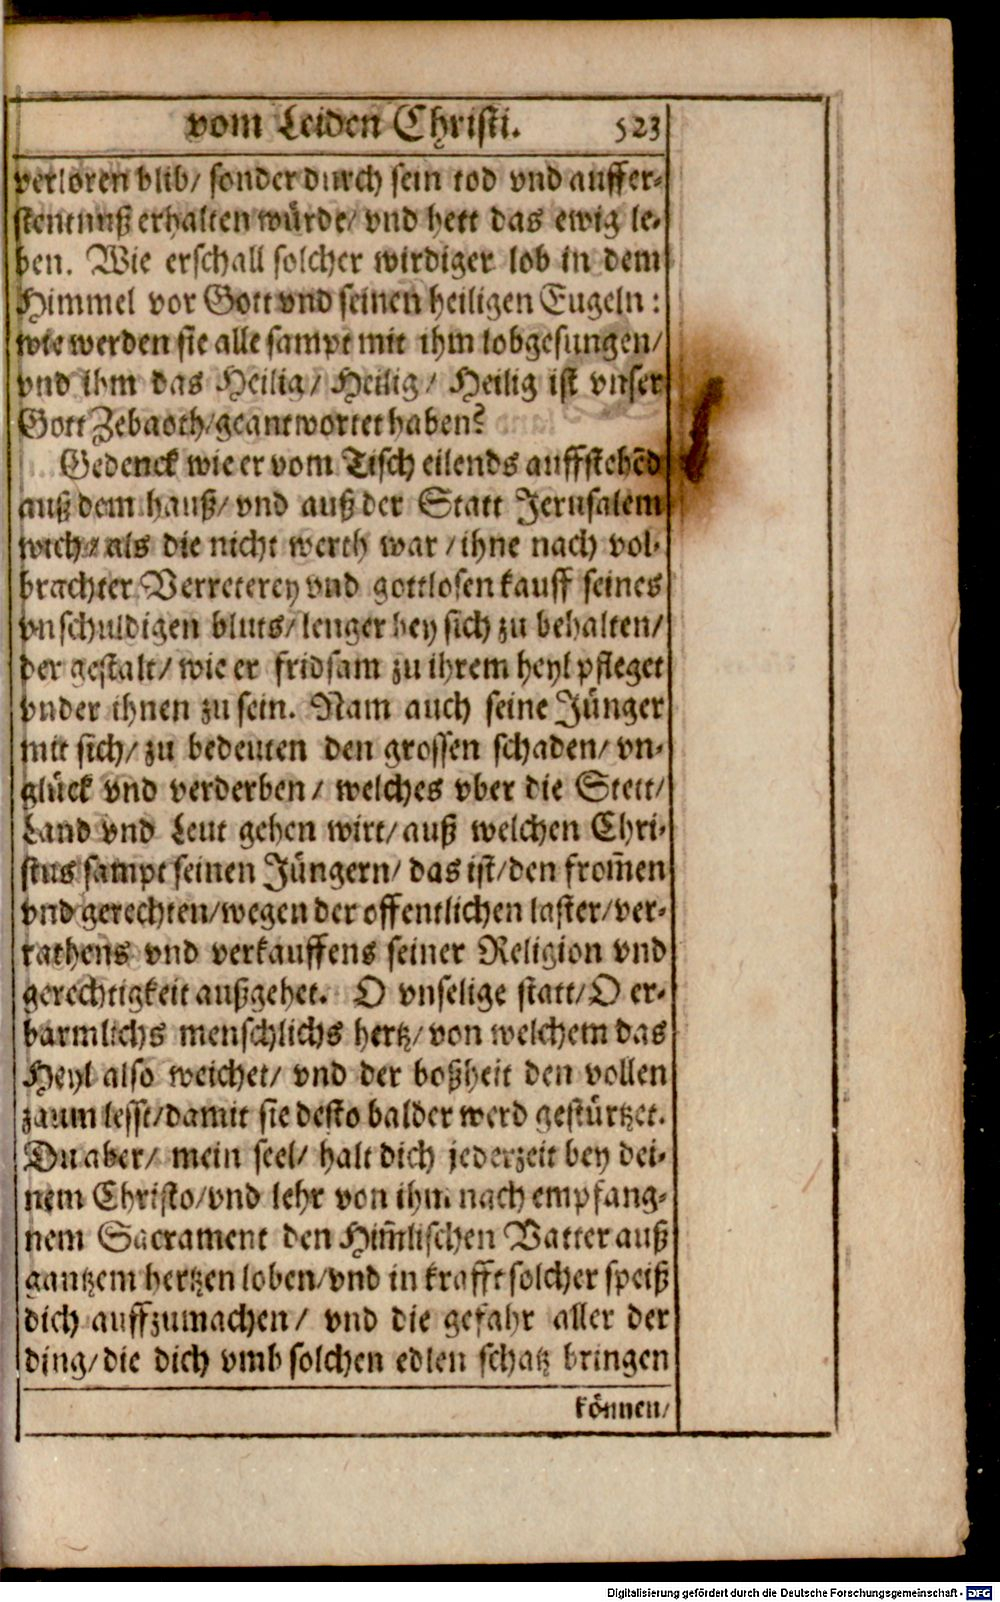 vom Leiden Christi. 523
verloren blib/ sonder durch sein tod vnd auffer-
stentnuß erhalten würde/ vnd hett das ewig le-
ben. Wie erschall solcher wirdiger lob in dem
Himmel vor Gott vnd seinen heiligen Eugeln:
wie werden sie alle sampt mit ihm lobgesungen/
vnd ihm das Heilig/ Heilig/ Heilig ist vnser
Gott Zebaoth/ geantwortet haben?
Gedenck wie er vom Tisch eilends auffstehēd
auß dem hauß/ vnd auß der Statt Jerusalem
wich/ als die nicht werth war/ ihne nach vol-
brachter Verreterey vnd gottlosen kauff seines
vnschuldigen bluts/ lenger bey sich zu behalten/
der gestalt/ wie er fridsam zu ihrem heyl pfleget
vnder ihnen zu sein. Nam auch seine Jünger
mit sich/ zu bedeuten den grossen schaden/ vn-
glück vnd verderben/ welches vber die Stett/
Land vnd Leut gehen wirt/ auß welchen Chri-
stus sampt seinen Jüngern/ das ist/ den from̄en
vnd gerechten/ wegen der offentlichen laster/ ver-
rathens vnd verkauffens seiner Religion vnd
gerechtigkeit außgehet. O vnselige statt/ O er-
barmlichs menschlichs hertz/ von welchem das
Heyl also weichet/ vnd der boßheit den vollen
zaum lesst/ damit sie desto balder werd gestürtzet.
Du aber/ mein seel/ halt dich jederzeit bey dei-
nem Christo/ vnd lehr von ihm nach empfang-
nem Sacrament den Him̄lischen Vatter auß
gantzem hertzen loben/ vnd in krafft solcher speiß
dich auffzumachen/ vnd die gefahr aller der
ding/ die dich vmb solchen edlen schatz bringen
können/
Digitalisierung gefördert durch die Deutsche Forschungsgemeinschaft - DFG